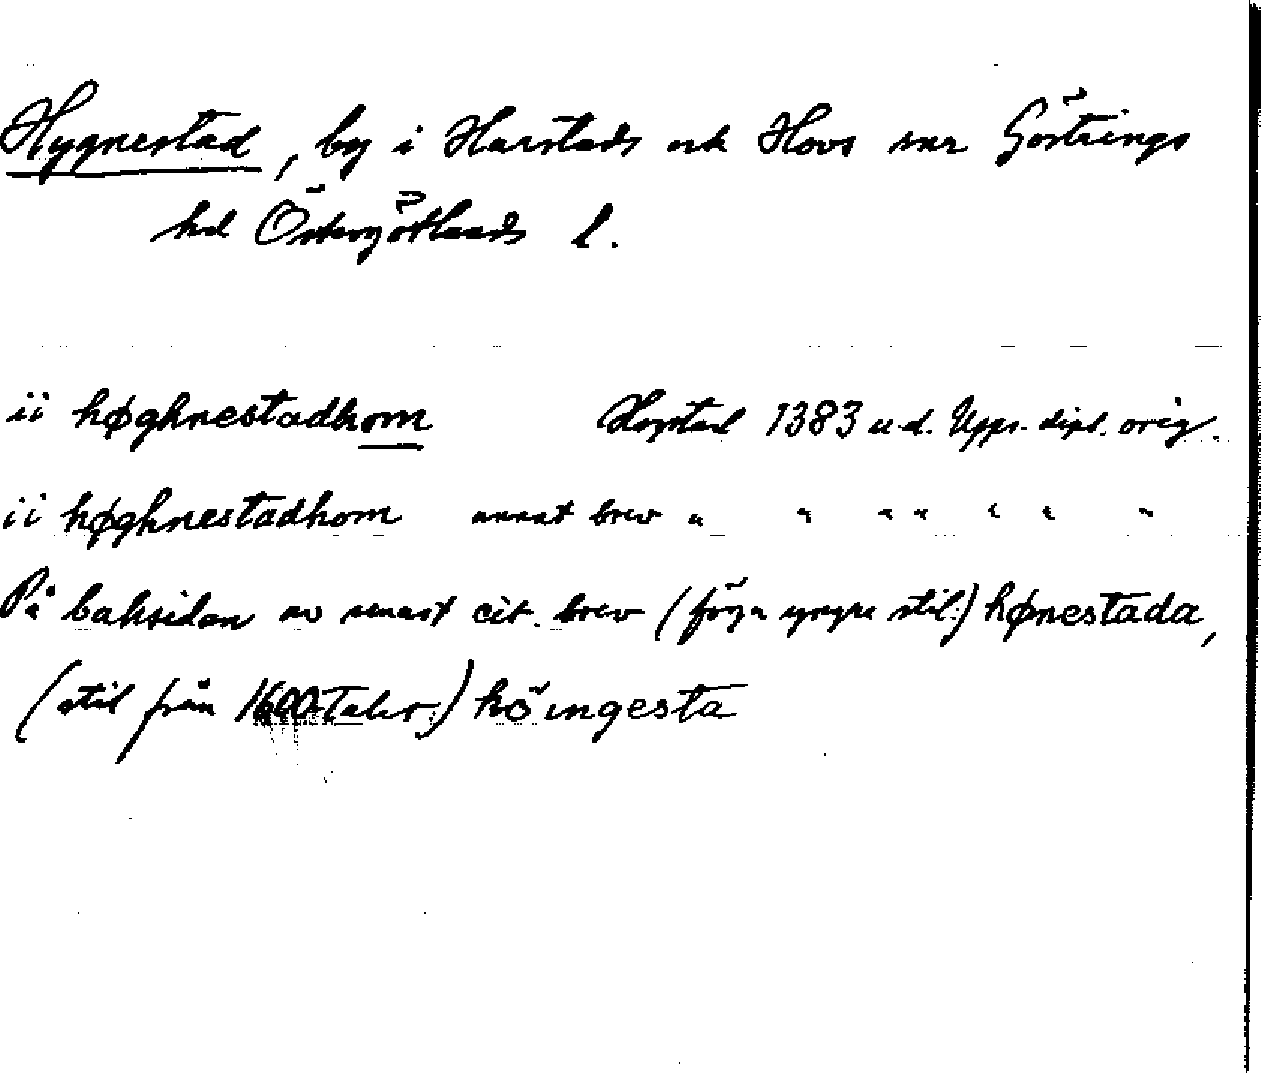 Hygnestad, by i Harstads och Hovs snr Göstrings
hd Östergötlands l.
ii høghnestadhom Hogstad 1383 u.d. Upps. dipl. orig.
ii høghnestadhom annat brev " " " " " " "
På baksidan av senast cit. brev (föga yngre stil:) hønestada,
(stil från 1600-talet:) höingesta